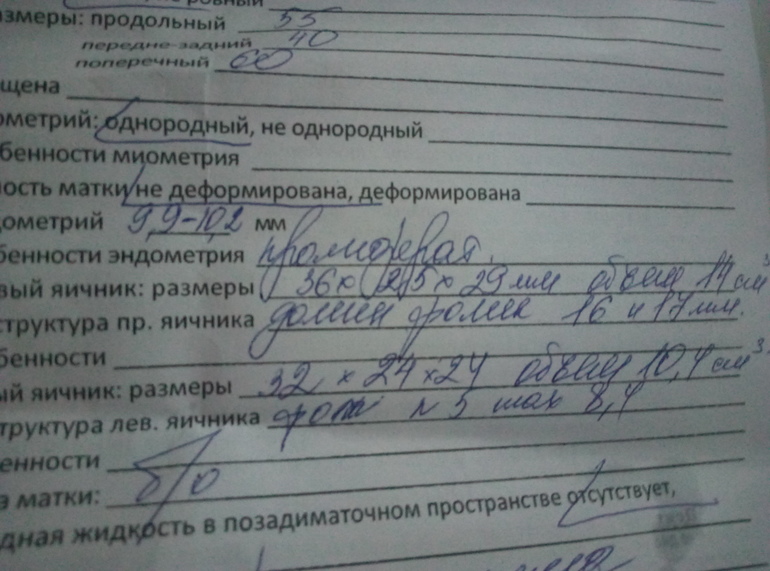 ровный
змеры: продольный 55
передне-задний 40
поперечный 60
щена
ометрий: однородный, не однородный
бенности миометрия
ность матки не деформирована, деформирована
дометрий 9,9-10,2 мм
бенности эндометрия пролиферат.
вый яичник: размеры 36х 25 х 29 мм объем 14 см³
структура пр. яичника домин фолик 16 и 17 мм.
бенности
ый яичник: размеры 32 х 24 х 24 объем 10,4 см³.
труктура лев. яичника фол n 5 max 8,4
енности
а матки: б/о
дная жидкость в позадиматочном пространстве отсутствует,